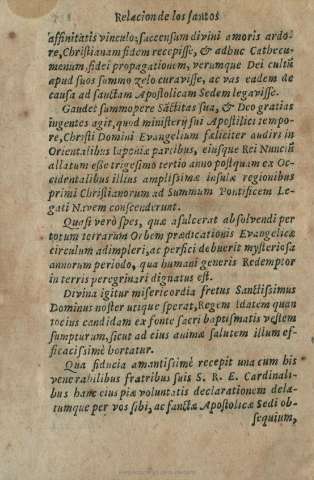 Relacion de los santos
affinitatis vinculo, succensum divini amoris ardo-
re, Christianam fidem recepisse, & adhuc Cathecu-
menum, fidei propagationem, verumque Dei cultũ
apud suos summo zelo curavisse, ac vas eadem de
causa ad sanctam Apostolicam Sedem legavisse.
Gaudet summopere Sãctitas sua, & Deo gratias
ingentes agit, quod ministerÿ sui Apostolici tempo-
re, Christi Domini Evangelium fœliciter audiri in
Orientalibus Iaponiæ partibus, eiusque Rei Nunciũ
allatum esse trigesimo tertio anno postquam ex Oc-
cidentalibus illius amplissimæ insulæ regionibus
primi Christianorum ad Summum Pontificem Le-
gati Navem conscenderunt.
Quasi verò spes, quæ afulcerat absolvendi per
totum terrarum Orbem prædicationis Evangelicæ
circulum adimpleri, ac perfici debuerit mysteriosa
annorum periodo, qua humani generis Redemptor
in terris peregrinari dignatus est.
Divina igitur misericordia fretus Sanctissimus
Dominus noster utique sperat, Regem Idatem quan
tocius candidam ex fonte sacri baptismatis vestem
sumpturam, sicut ad eius animæ salutem illum ef-
ficacissimè hortatur.
Qua fiducia amantissimè recepit una cum his
venerabilibus fratribus suis S. R. E. Cardinali-
bus hanc eius piæ voluntatis declarationem dela-
tumque per vos sibi, ac sanctæ Apostolicæ Sedi ob-
sequium,